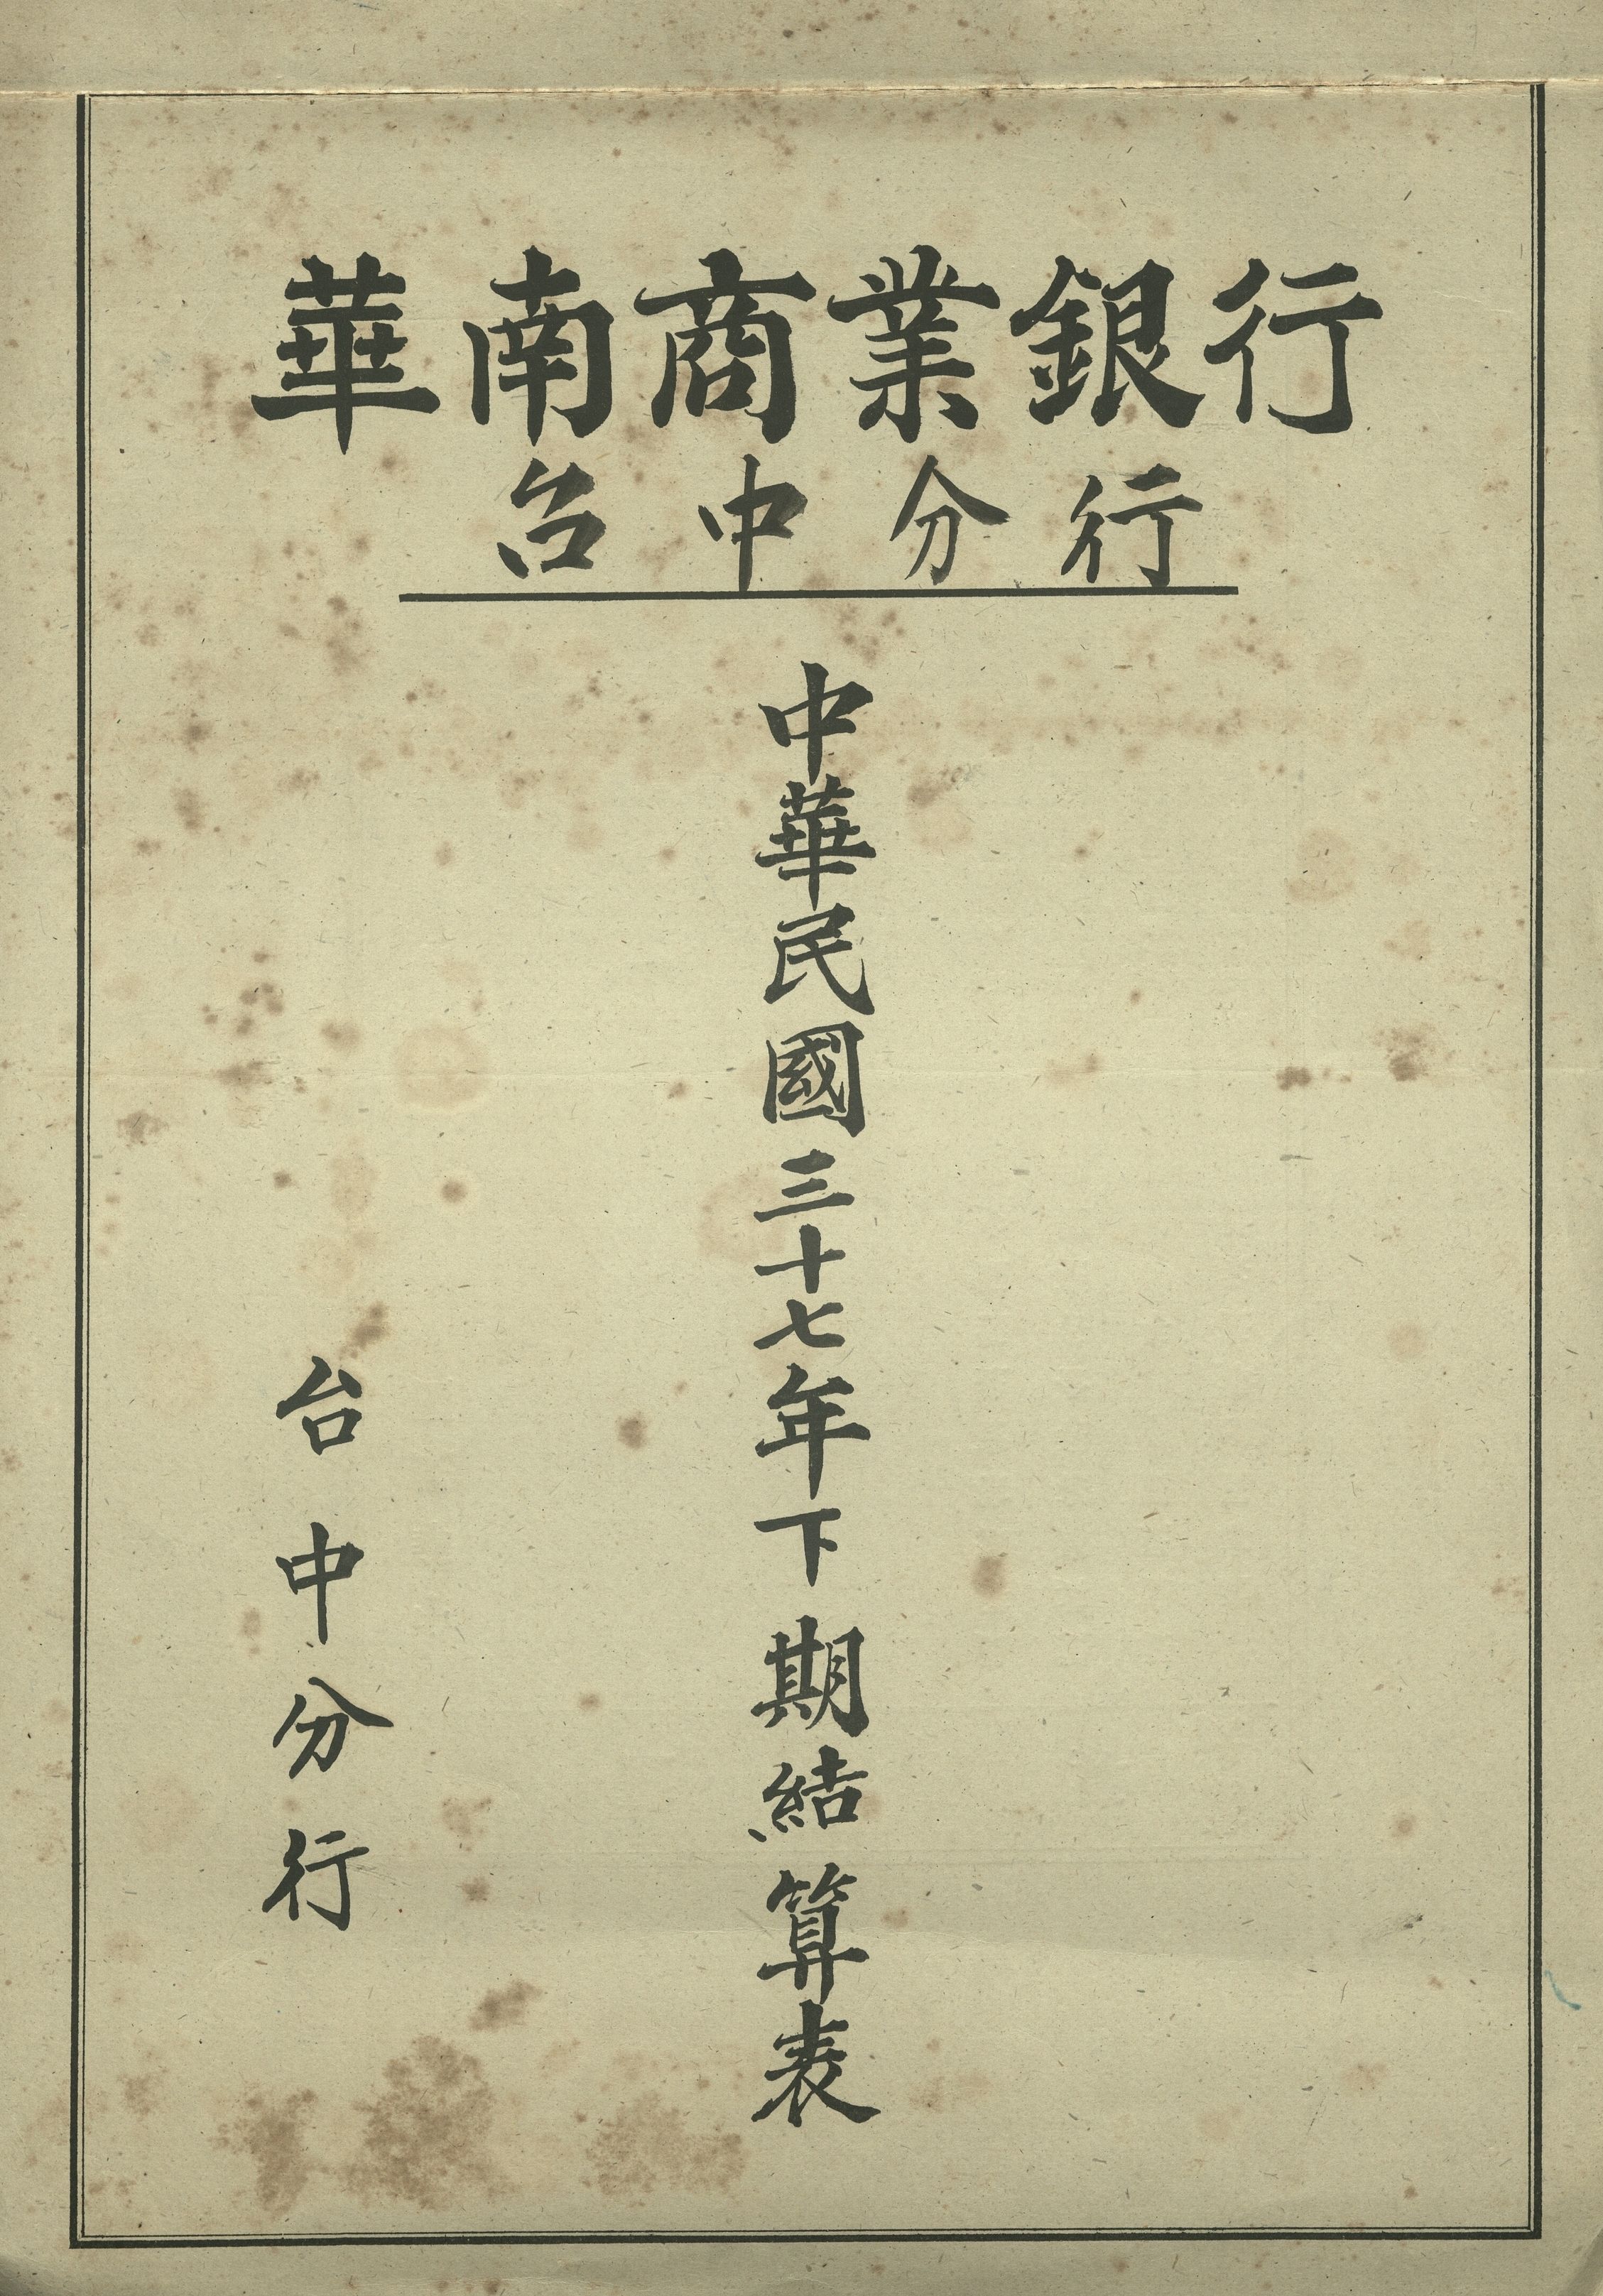 華南商業銀行
台中分行
中華民國三十七年下期結算表
台中分行